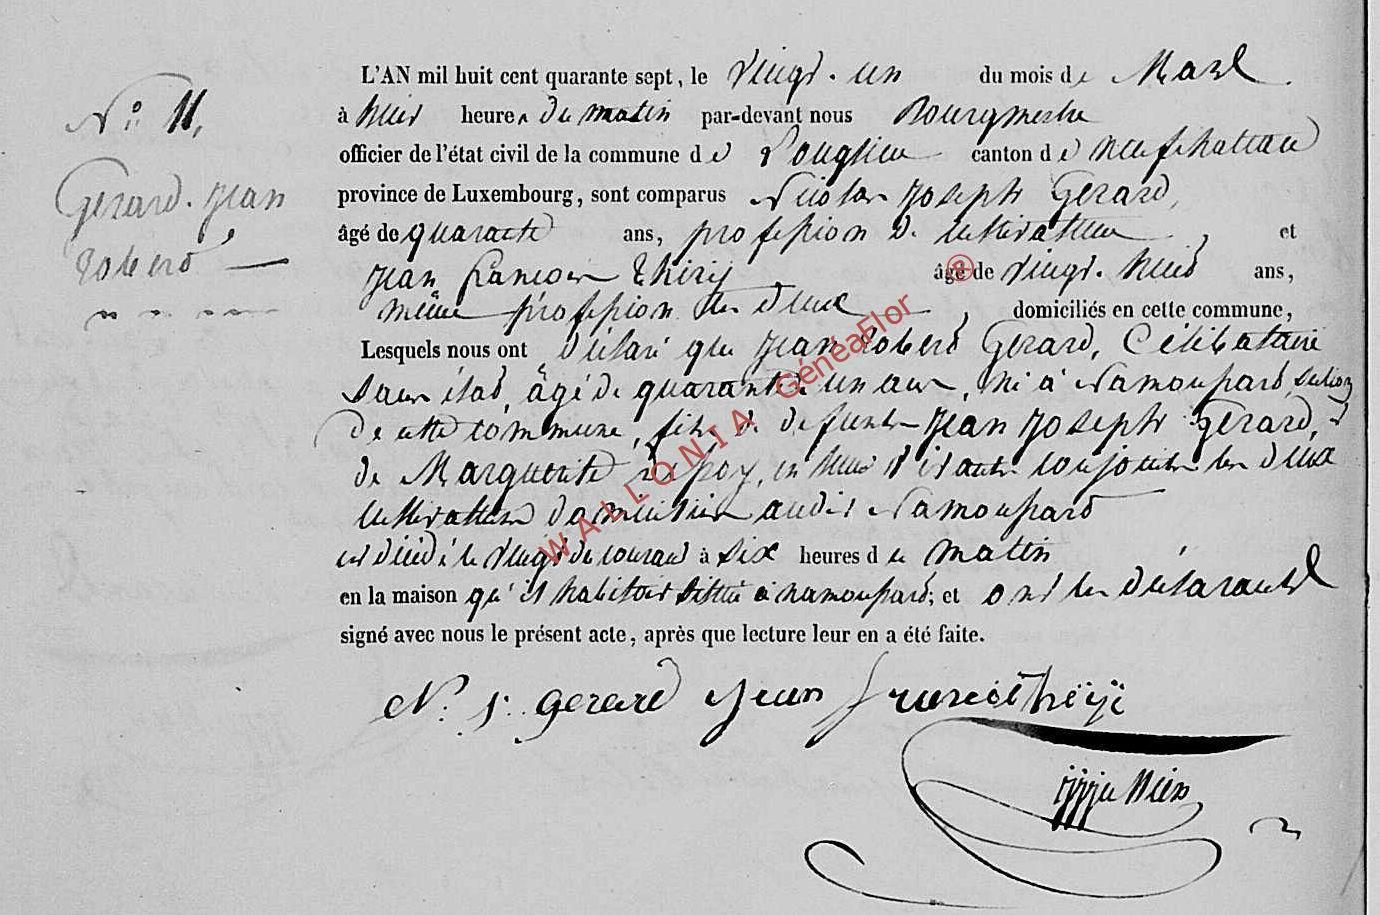 N.° 11,
Gerard. Jean
Robert
L'AN mil huit cent quarante sept, le vingt. un du mois de Mars
à huit heures du matin par-devant nous Bourgmestre
officier de l'état civil de la commune de Longlier canton de neufchateau
province de Luxembourg, sont comparus Nicolas Joseph Gerard,
âgé de quarante ans, profession de cultivateur, et
Jean francois Thiry âgé de vingt. huit ans,
même profession les deux, domiciliés en cette commune,
Lesquels nous ont déclaré que Jean Robert Gerard, Célibataire
sans état, âgé de quarante un ans, né à Namoussard section
de cette commune, fils de defunts Jean Joseph Gerard,
de Marguerite en leur vivant conjoints les deux
cultivateurs domiciliés audit Namoussard
est décédé le vingt du courant à six heures du matin
en la maison qu'il habitait située à namoussard; et ont les déclarants
signé avec nous le présent acte, après que lecture leur en a été faite.
N. j. gerard jean francois thiry
WALLONIA GénéaFlor ®